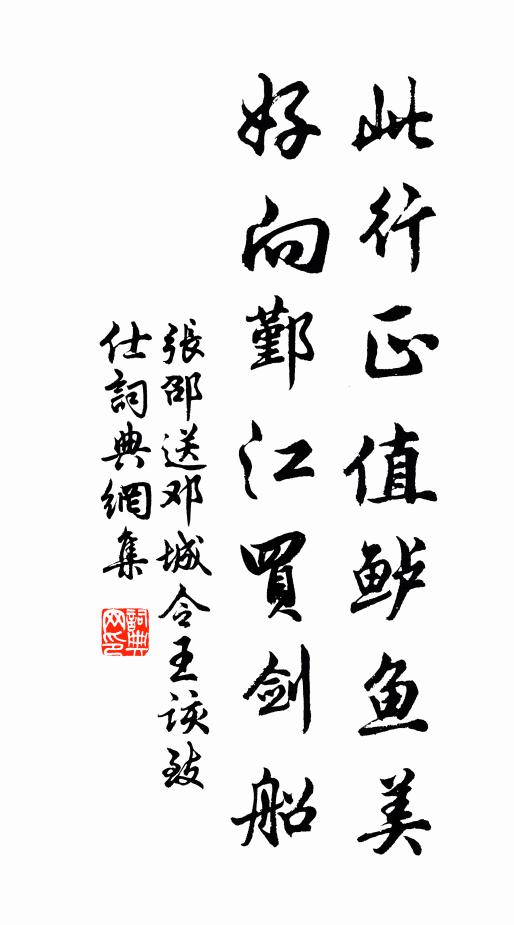 此行正值鲈鱼美
好向鄞江買剑船
張邵送邓城令王谈致
仕詞典網集
詞典
网